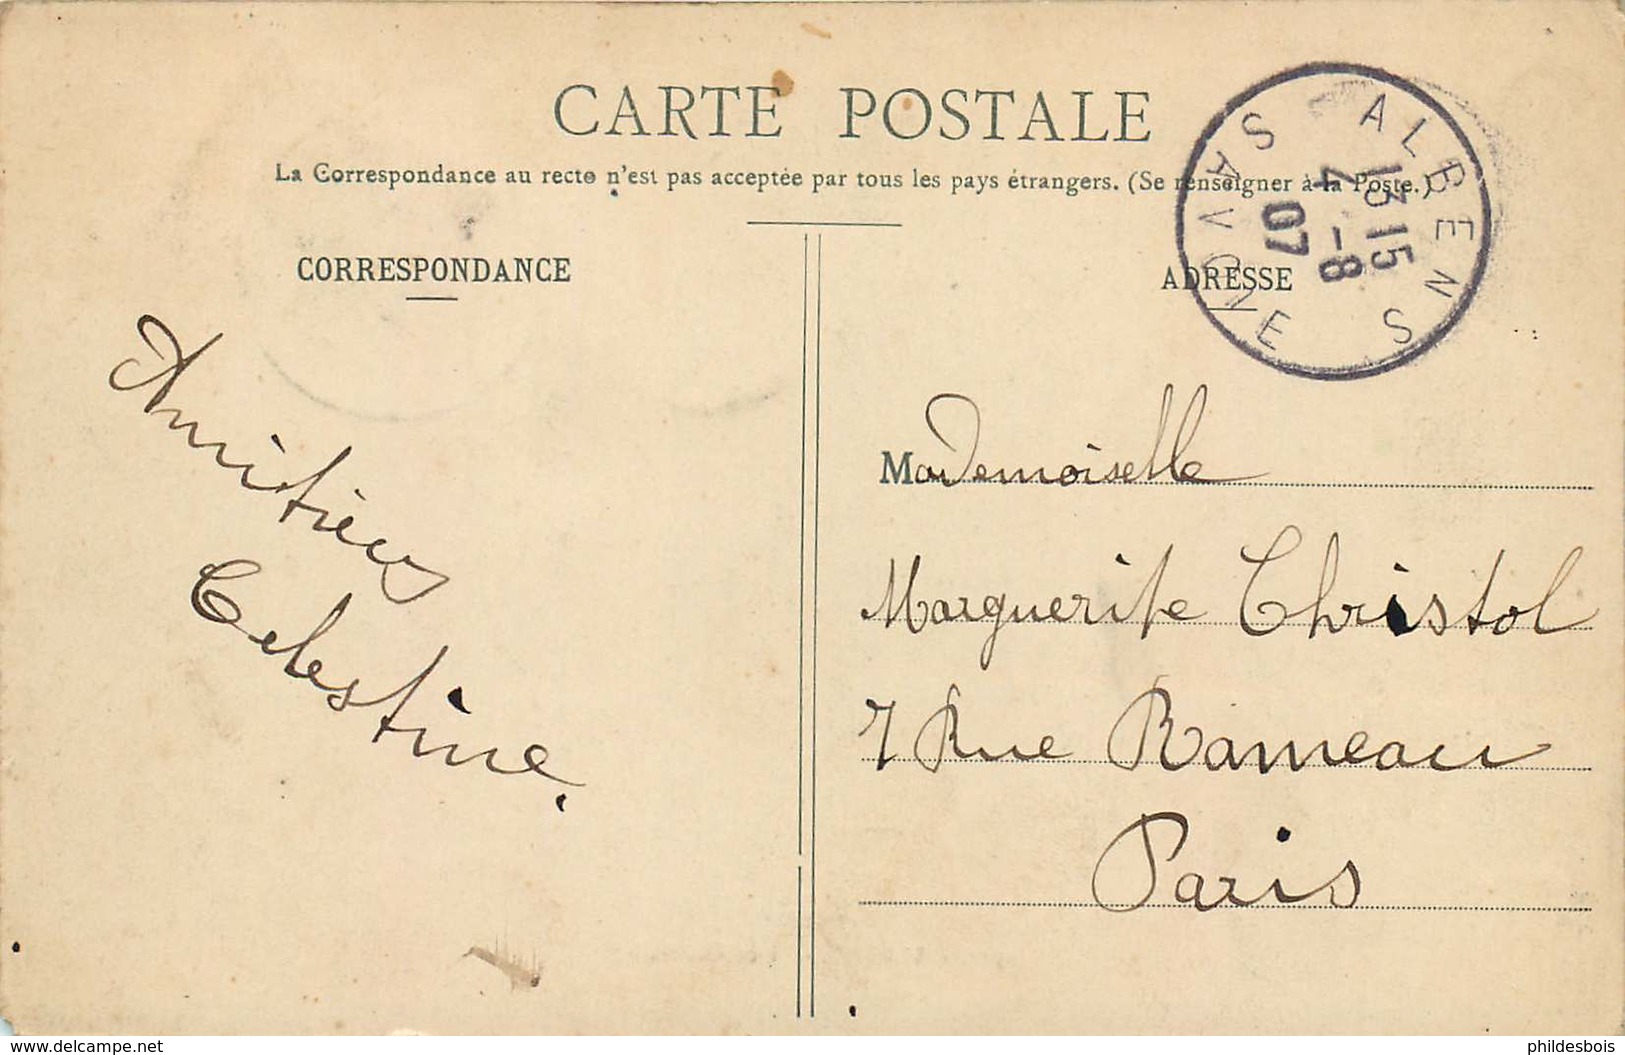 CARTE POSTALE
La Correspondance au recto n'est pas acceptée par tous les pays étrangers. (Se renseigner à la Poste.)
CORRESPONDANCE
Amitiés
Celestine.
ADRESSE
ALBENS
13 15
4 -8
07
SAVOIE
Mademoiselle
Marguerite Christol
7 Rue Rameau
Paris
www.delcampe.net
phildesbois